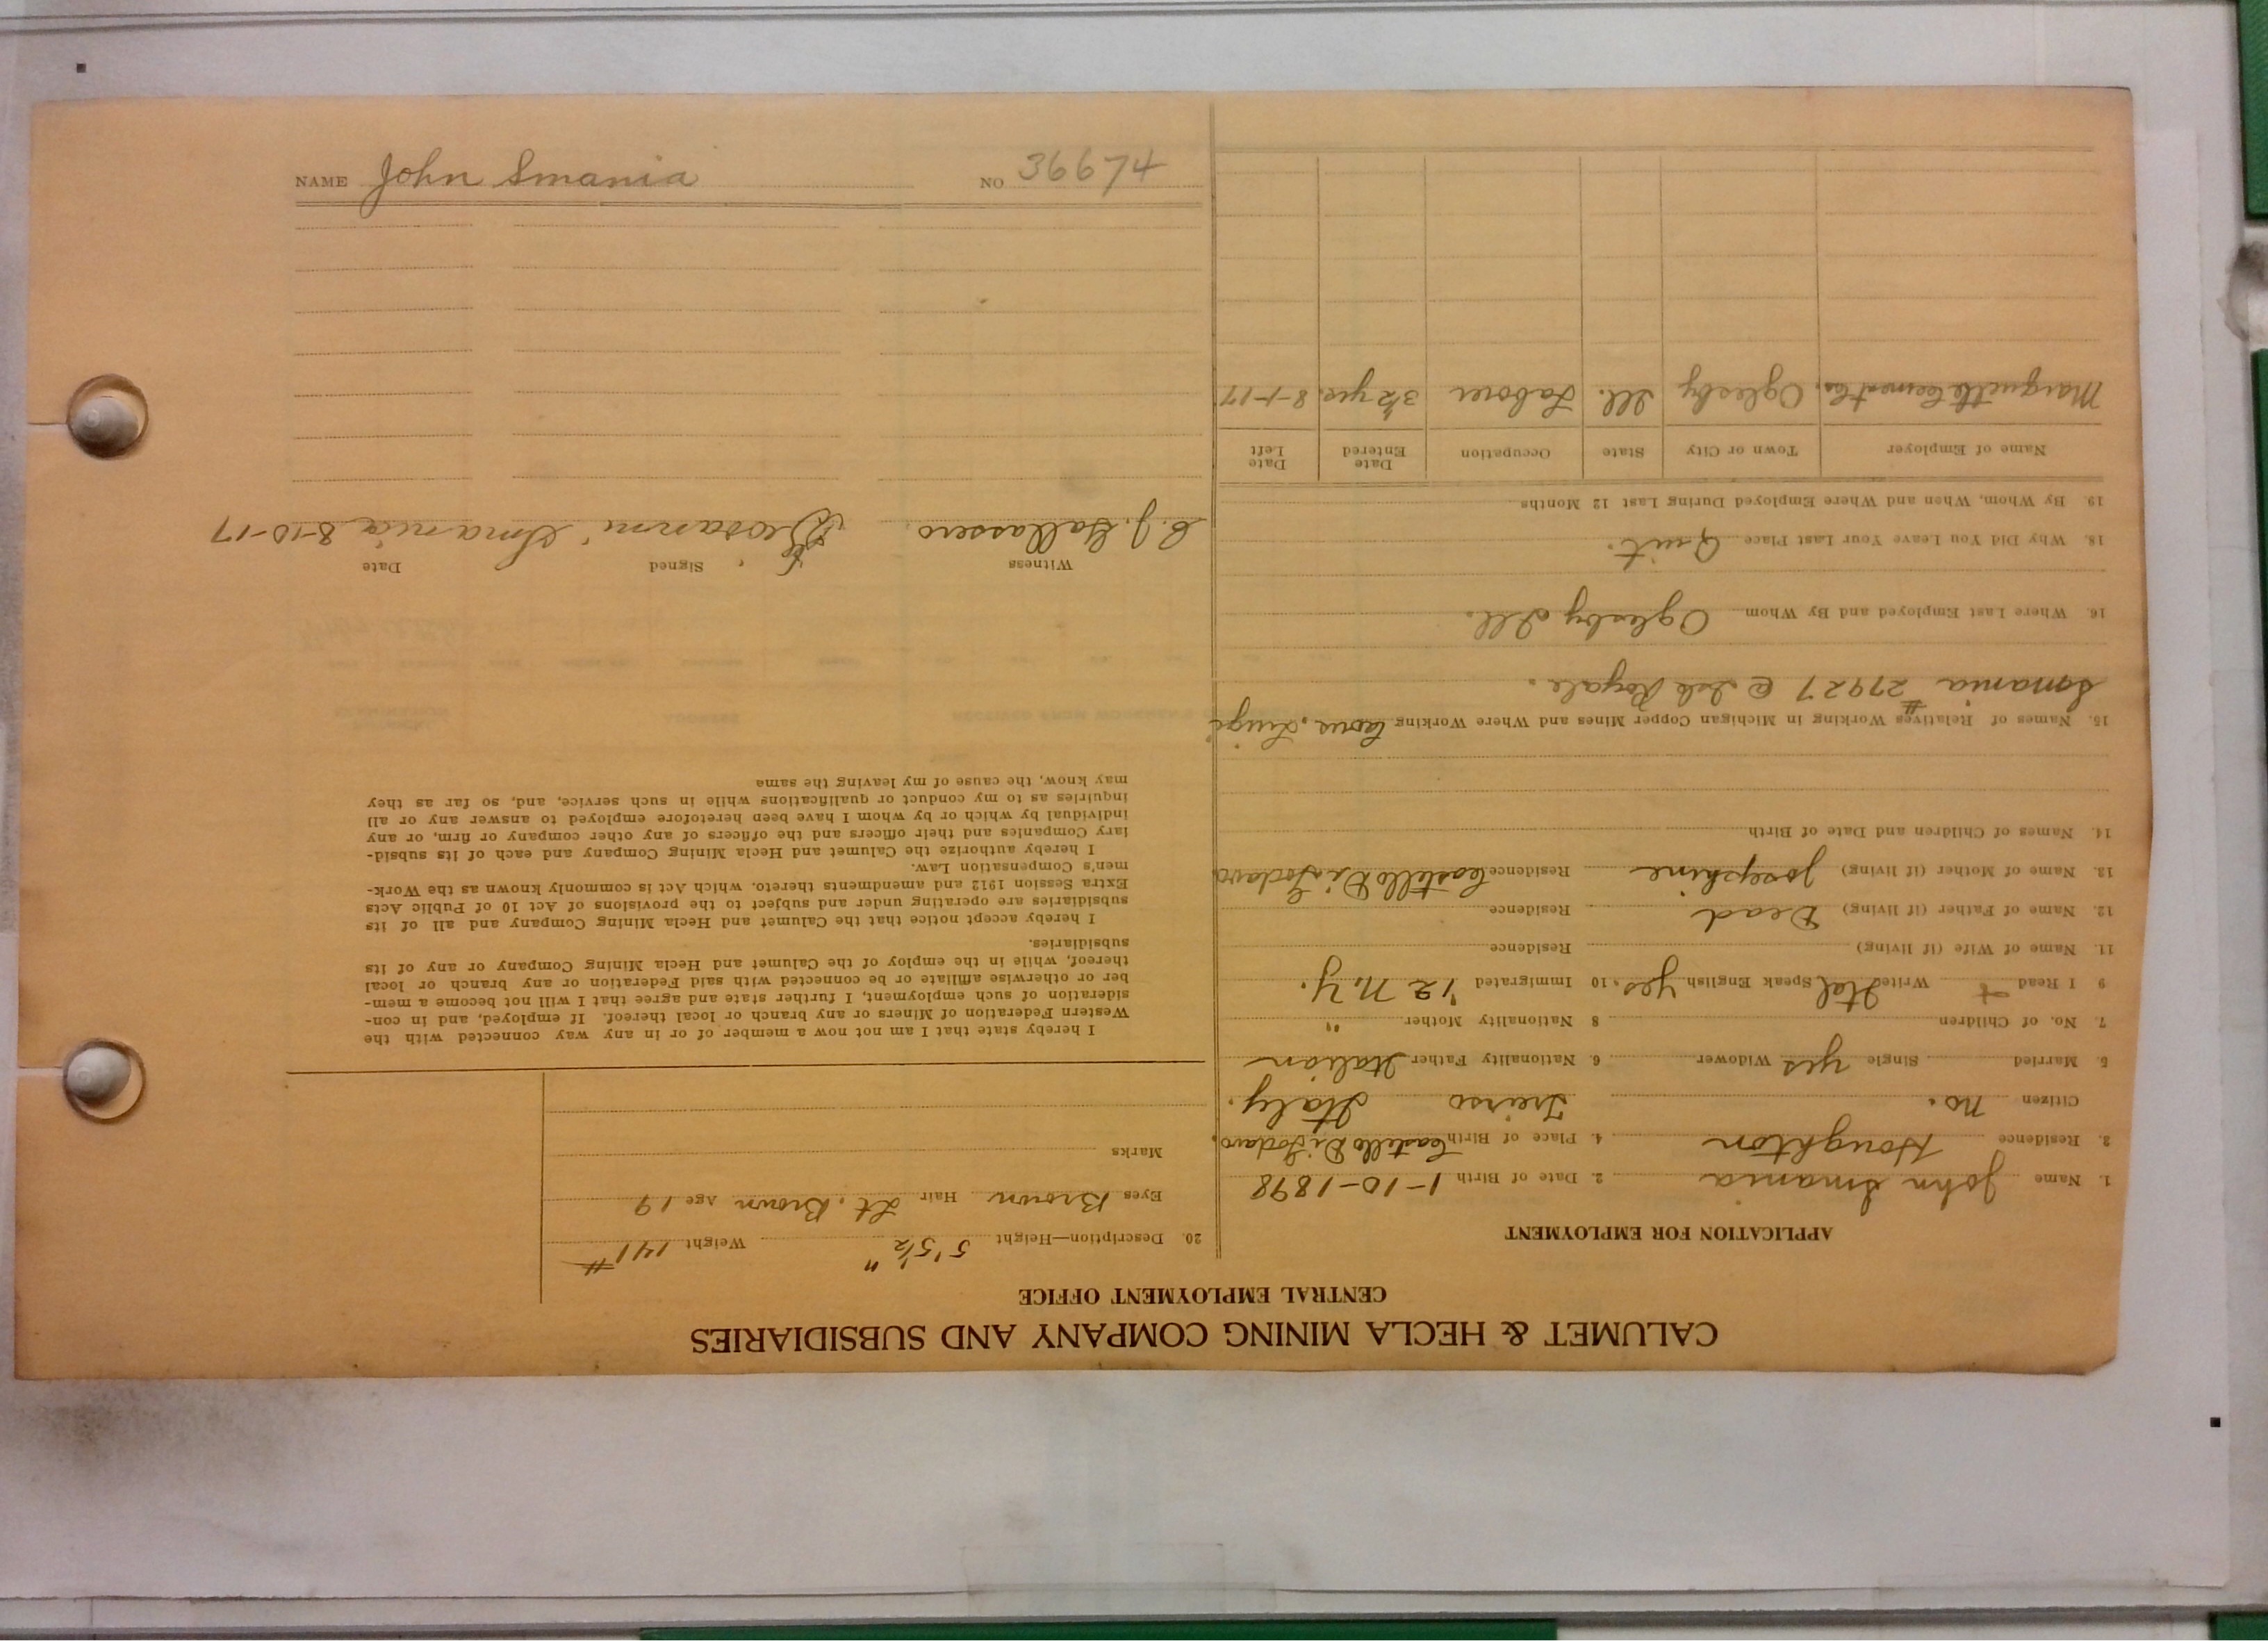 CALUMET & HECLA MINING COMPANY AND SUBSIDIARIES
CENTRAL EMPLOYMENT OFFICE
APPLICATION FOR EMPLOYMENT
1. Name John Smania 2. Date of Birth 1-10-1898
3. Residence Houghton 4. Place of Birth Castello Di Godaro,
Citizen no. Treirso Italy.
5. Married Single yes Widower 6. Nationality Father Italian
7. No. of Children 8 Nationality Mother "
9 I Read & Write Ital Speak English yes. 10 Immigrated '12 N.Y.
11. Name of Wife (if living) Residence
12. Name of Father (if living) Dead Residence
13. Name of Mother (if living) Josephine Residence Castello Di Godaro
14. Names of Children and Date of Birth
15. Names of Relatives Working in Michigan Copper Mines and Where Working Cous, Luigi
Smania #27927 @ Isle Royale.
16. Where Last Employed and By Whom Oglesby Ill.
18. Why Did You Leave Your Last Place Quit.
19. By Whom, When and Where Employed During Last 12 Months
Name of Employer Town or City State Occupation Date Entered Date Left
Marquette Cement Co. Oglesby Ill. Laborer 3½ yrs. 8-1-17
20. Description—Height 5'5½" Weight 141#
Eyes Brown Hair Lt. Brown Age 19
Marks
I hereby state that I am not now a member of or in any way connected with the
Western Federation of Miners or any branch or local thereof. If employed, and in con-
sideration of such employment, I further state and agree that I will not become a mem-
ber or otherwise affiliate or be connected with said Federation or any branch or local
thereof, while in the employ of the Calumet and Hecla Mining Company or any of its
subsidiaries.
I hereby accept notice that the Calumet and Hecla Mining Company and all of its
subsidiaries are operating under and subject to the provisions of Act 10 of Public Acts
Extra Session 1912 and amendments thereto, which Act is commonly known as the Work-
men's Compensation Law.
I hereby authorize the Calumet and Hecla Mining Company and each of its subsid-
iary Companies and their officers and the officers of any other company or firm, or any
individual by which or by whom I have been heretofore employed to answer any or all
inquiries as to my conduct or qualifications while in such service, and, so far as they
may know, the cause of my leaving the same
Witness Signed Date
Smania 8-10-17
NAME John Smania NO 36674